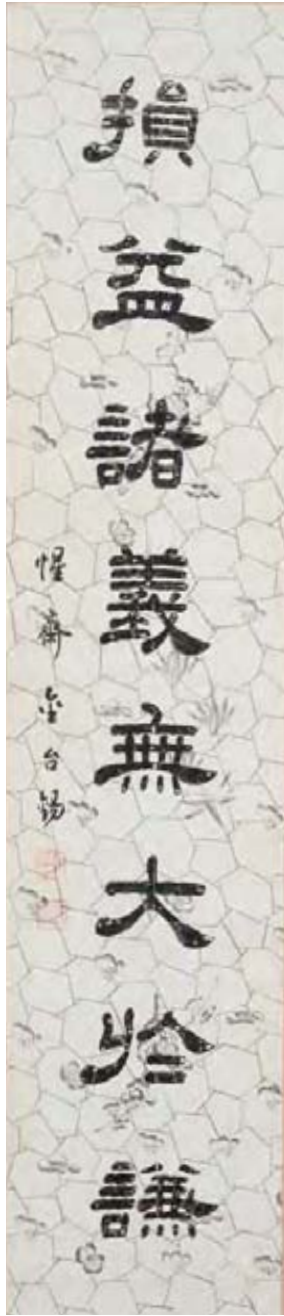 損益諸義無大於謙
惺齋金台錫